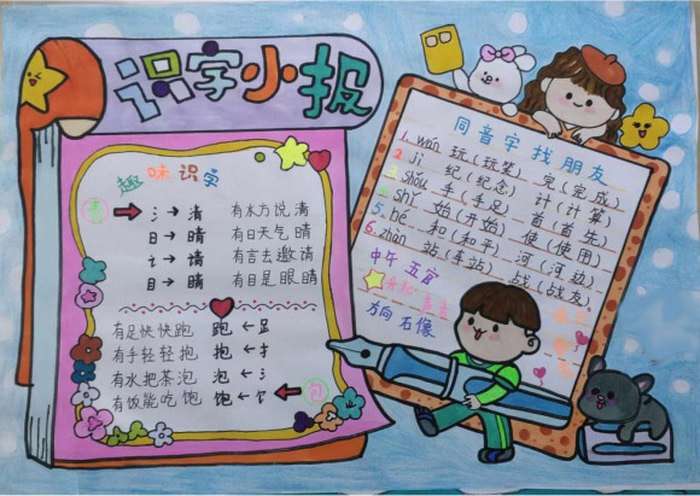 识字小报
趣味识字
青 → 氵 → 清 有水方说清
日 → 晴 有日天气晴
讠 → 请 有言去邀请
目 → 睛 有目是眼睛
有足快快跑 跑 ← 𧾷
有手轻轻抱 抱 ← 扌
有水把茶泡 泡 ← 氵
有饭能吃饱 饱 ← 饣 ← 包
同音字找朋友
1. wán 玩(玩笑) 完(完成)
2 jì 纪(纪念) 计(计算)
3 shǒu 手(手足) 首(首先)
4 shǐ 始(开始) 使(使用)
5. hé 和(和平) 河(河边)
6. zhàn 站(车站) 战(战友)
中午 五官
方向 石像